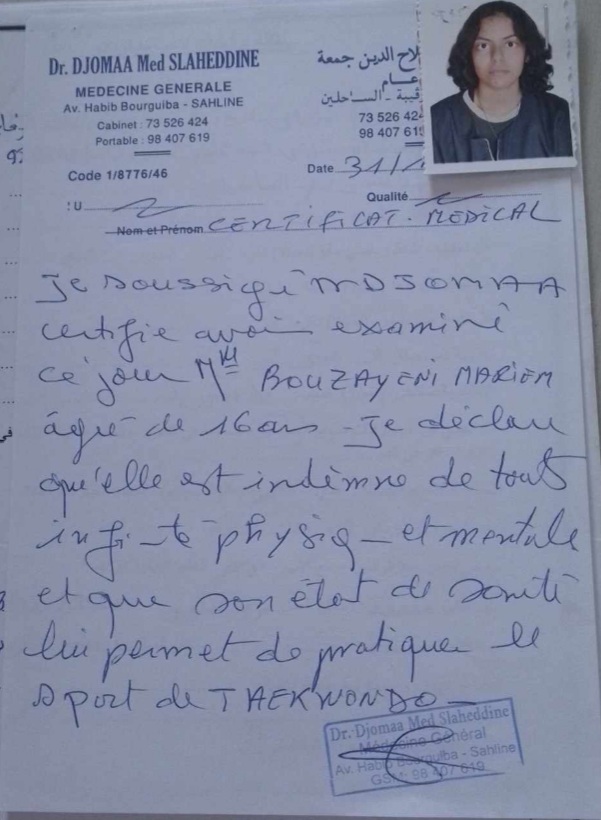 Dr. DJOMAA Med SLAHEDDINE
MEDECINE GENERALE
Av. Habib Bourguiba - SAHLINE
Cabinet : 73 526 424
Portable : 98 407 619
Code 1/8776/46
لاح الدين جمعة
عام
قيبة - الساحلين
73 526 42
98 407 61
Date 31/1
: U
Qualité
Nom et Prénom CERTIFICAT. MEDICAL
Je soussigé DJOMAA
certifie avoir examiné
ce jour Mlle BOUZAYENI MARIEM
âgée de 16 ans - Je déclare
qu'elle est indemne de toute
infi-té physiq- et mentale
et que son état de santé
lui permet de pratiquer le
sport de TAEKWONDO -
Dr. Djomaa Med Slaheddine
Médecine Général
Av. Habib Bourguiba - Sahline
GSM: 98 407 619